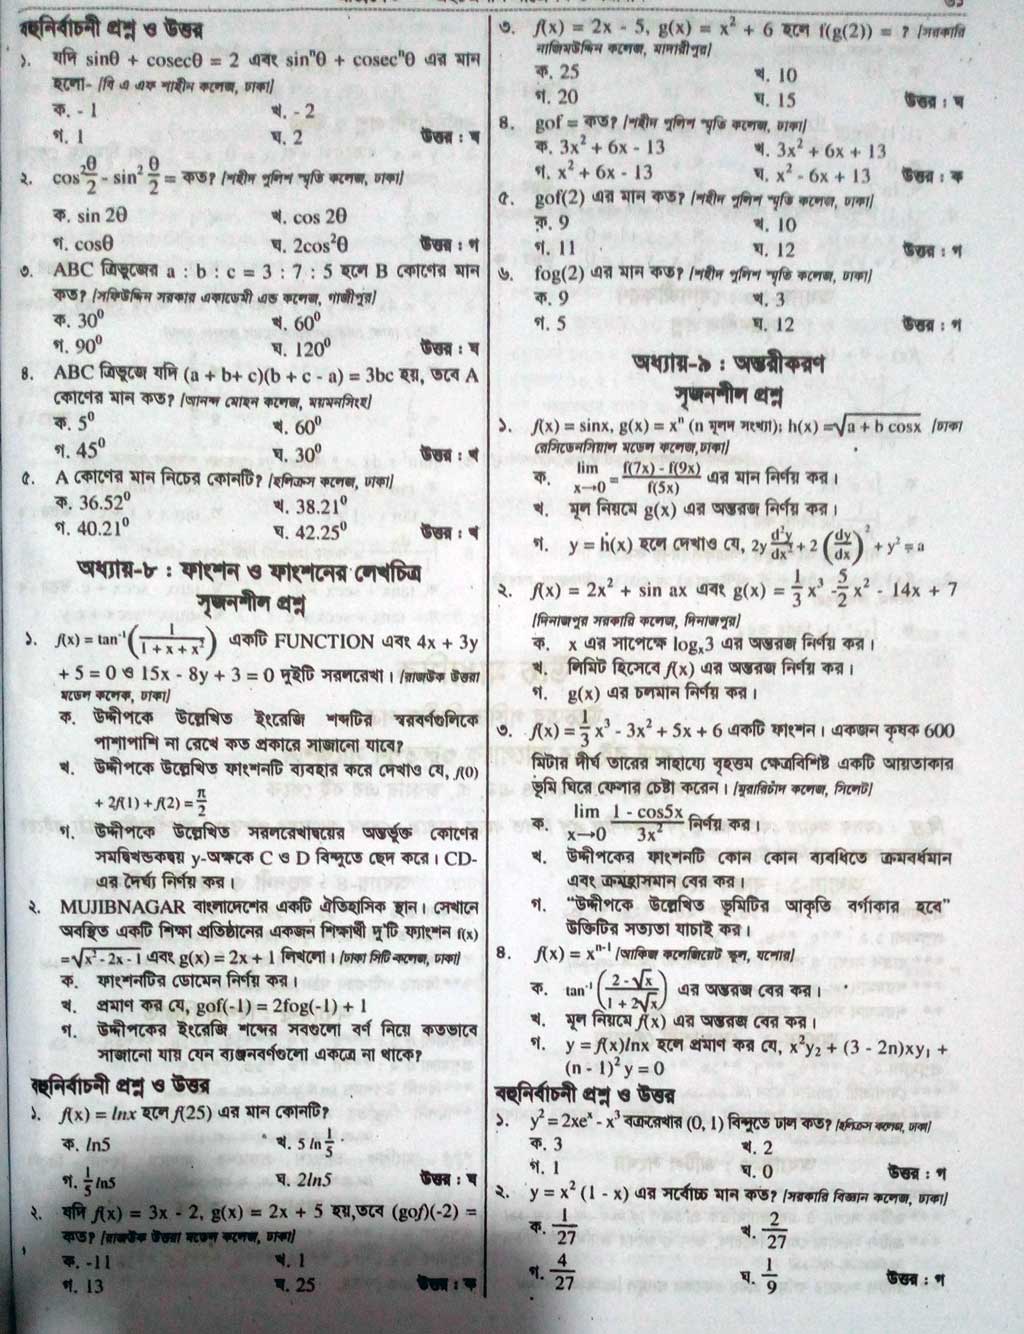 বহুনির্বাচনী প্রশ্ন ও উত্তর
১. যদি sinθ + cosecθ = 2 এবং sinⁿθ + cosecⁿθ এর মান
হলো- [বি এ এফ শাহীন কলেজ, ঢাকা]
ক. - 1 খ. - 2
গ. 1 ঘ. 2 উত্তর : ঘ
২. cos² θ/2 - sin² θ/2 = কত? [শহীদ পুলিশ স্মৃতি কলেজ, ঢাকা]
ক. sin 2θ খ. cos 2θ
গ. cosθ ঘ. 2cos²θ উত্তর : গ
৩. ABC ত্রিভুজের a : b : c = 3 : 7 : 5 হলে B কোণের মান
কত? [সফিউদ্দিন সরকার একাডেমী এন্ড কলেজ, গাজীপুর]
ক. 30⁰ খ. 60⁰
গ. 90⁰ ঘ. 120⁰ উত্তর : ঘ
৪. ABC ত্রিভুজে যদি (a + b+ c)(b + c - a) = 3bc হয়, তবে A
কোণের মান কত? [আনন্দ মোহন কলেজ, ময়মনসিংহ]
ক. 5⁰ খ. 60⁰
গ. 45⁰ ঘ. 30⁰ উত্তর : খ
৫. A কোণের মান নিচের কোনটি? [হলিক্রস কলেজ, ঢাকা]
ক. 36.52⁰ খ. 38.21⁰
গ. 40.21⁰ ঘ. 42.25⁰ উত্তর : খ
অধ্যায়-৮ : ফাংশন ও ফাংশনের লেখচিত্র
সৃজনশীল প্রশ্ন
১. f(x) = tan⁻¹(1/(1 + x + x²)) একটি FUNCTION এবং 4x + 3y
+ 5 = 0 ও 15x - 8y + 3 = 0 দুইটি সরলরেখা। [রাজউক উত্তরা
মডেল কলেজ, ঢাকা]
ক. উদ্দীপকে উল্লেখিত ইংরেজি শব্দটির স্বরবর্ণগুলিকে
পাশাপাশি না রেখে কত প্রকারে সাজানো যাবে?
খ. উদ্দীপকে উল্লেখিত ফাংশনটি ব্যবহার করে দেখাও যে, f(0)
+ 2f(1) + f(2) = π/2
গ. উদ্দীপকে উল্লেখিত সরলরেখাদ্বয়ের অন্তর্ভুক্ত কোণের
সমদ্বিখন্ডকদ্বয় y-অক্ষকে C ও D বিন্দুতে ছেদ করে। CD-
এর দৈর্ঘ্য নির্ণয় কর।
২. MUJIBNAGAR বাংলাদেশের একটি ঐতিহাসিক স্থান। সেখানে
অবস্থিত একটি শিক্ষা প্রতিষ্ঠানের একজন শিক্ষার্থী দু'টি ফ্যাংশন f(x)
=√(x² - 2x - 1) এবং g(x) = 2x + 1 লিখলো। [ঢাকা সিটি কলেজ, ঢাকা]
ক. ফাংশনটির ডোমেন নির্ণয় কর।
খ. প্রমাণ কর যে, gof(-1) = 2fog(-1) + 1
গ. উদ্দীপকের ইংরেজি শব্দের সবগুলো বর্ণ নিয়ে কতভাবে
সাজানো যায় যেন ব্যঞ্জনবর্ণগুলো একত্রে না থাকে?
বহুনির্বাচনী প্রশ্ন ও উত্তর
১. f(x) = lnx হলে f(25) এর মান কোনটি?
ক. ln5 খ. 5 ln 1/5
গ. 1/5 ln5 ঘ. 2ln5 উত্তর : ঘ
২. যদি f(x) = 3x - 2, g(x) = 2x + 5 হয়,তবে (gof)(-2) =
কত? [রাজউক উত্তরা মডেল কলেজ, ঢাকা]
ক. -11 খ. 1
গ. 13 ঘ. 25 উত্তর : ক
৩. f(x) = 2x - 5, g(x) = x² + 6 হলে f(g(2)) = ? [সরকারি
নাজিমউদ্দিন কলেজ, মাদারীপুর]
ক. 25 খ. 10
গ. 20 ঘ. 15 উত্তর : ঘ
৪. gof = কত? [শহীদ পুলিশ স্মৃতি কলেজ, ঢাকা]
ক. 3x² + 6x - 13 খ. 3x² + 6x + 13
গ. x² + 6x - 13 ঘ. x² - 6x + 13 উত্তর : ক
৫. gof(2) এর মান কত? [শহীদ পুলিশ স্মৃতি কলেজ, ঢাকা]
ক. 9 খ. 10
গ. 11 ঘ. 12 উত্তর : গ
৬. fog(2) এর মান কত? [শহীদ পুলিশ স্মৃতি কলেজ, ঢাকা]
ক. 9 খ. 3
গ. 5 ঘ. 12 উত্তর : গ
অধ্যায়-৯ : অন্তরীকরণ
সৃজনশীল প্রশ্ন
১. f(x) = sinx, g(x) = xⁿ (n মূলদ সংখ্যা); h(x) =√(a + b cosx) [ঢাকা
রেসিডেনসিয়াল মডেল কলেজ,ঢাকা]
ক. lim x→0 = (f(7x) - f(9x))/f(5x) এর মান নির্ণয় কর।
খ. মূল নিয়মে g(x) এর অন্তরজ নির্ণয় কর।
গ. y = h(x) হলে দেখাও যে, 2y d²y/dx² + 2 (dy/dx)² + y² = a
২. f(x) = 2x² + sin ax এবং g(x) = 1/3 x³ - 5/2 x² - 14x + 7
[দিনাজপুর সরকারি কলেজ, দিনাজপুর]
ক. x এর সাপেক্ষে logₓ3 এর অন্তরজ নির্ণয় কর।
খ. লিমিট হিসেবে f(x) এর অন্তরজ নির্ণয় কর।
গ. g(x) এর চলমান নির্ণয় কর।
৩. f(x) = 1/3 x³ - 3x² + 5x + 6 একটি ফাংশন। একজন কৃষক 600
মিটার দীর্ঘ তারের সাহায্যে বৃহত্তম ক্ষেত্রবিশিষ্ট একটি আয়তাকার
ভূমি ঘিরে ফেলার চেষ্টা করেন। [মুরারিচাঁদ কলেজ, সিলেট]
ক. lim x→0 (1 - cos5x)/3x² নির্ণয় কর।
খ. উদ্দীপকের ফাংশনটি কোন কোন ব্যবধিতে ক্রমবর্ধমান
এবং ক্রমহ্রাসমান বের কর।
গ. “উদ্দীপকে উল্লেখিত ভূমিটির আকৃতি বর্গাকার হবে”
উক্তিটির সত্যতা যাচাই কর।
৪. f(x) = xⁿ⁻¹ [আকিজ কলেজিয়েট স্কুল, যশোর]
ক. tan⁻¹ ((2 - √x)/(1 + 2√x)) এর অন্তরজ বের কর।
খ. মূল নিয়মে f(x) এর অন্তরজ বের কর।
গ. y = f(x)lnx হলে প্রমাণ কর যে, x²y₂ + (3 - 2n)xy₁ +
(n - 1)² y = 0
বহুনির্বাচনী প্রশ্ন ও উত্তর
১. y² = 2xeˣ - x³ বক্ররেখার (0, 1) বিন্দুতে ঢাল কত? [হলিক্রস কলেজ, ঢাকা]
ক. 3 খ. 2
গ. 1 ঘ. 0 উত্তর : গ
২. y = x² (1 - x) এর সর্বোচ্চ মান কত? [সরকারি বিজ্ঞান কলেজ, ঢাকা]
ক. 1/27 খ. 2/27
গ. 4/27 ঘ. 1/9 উত্তর : গ